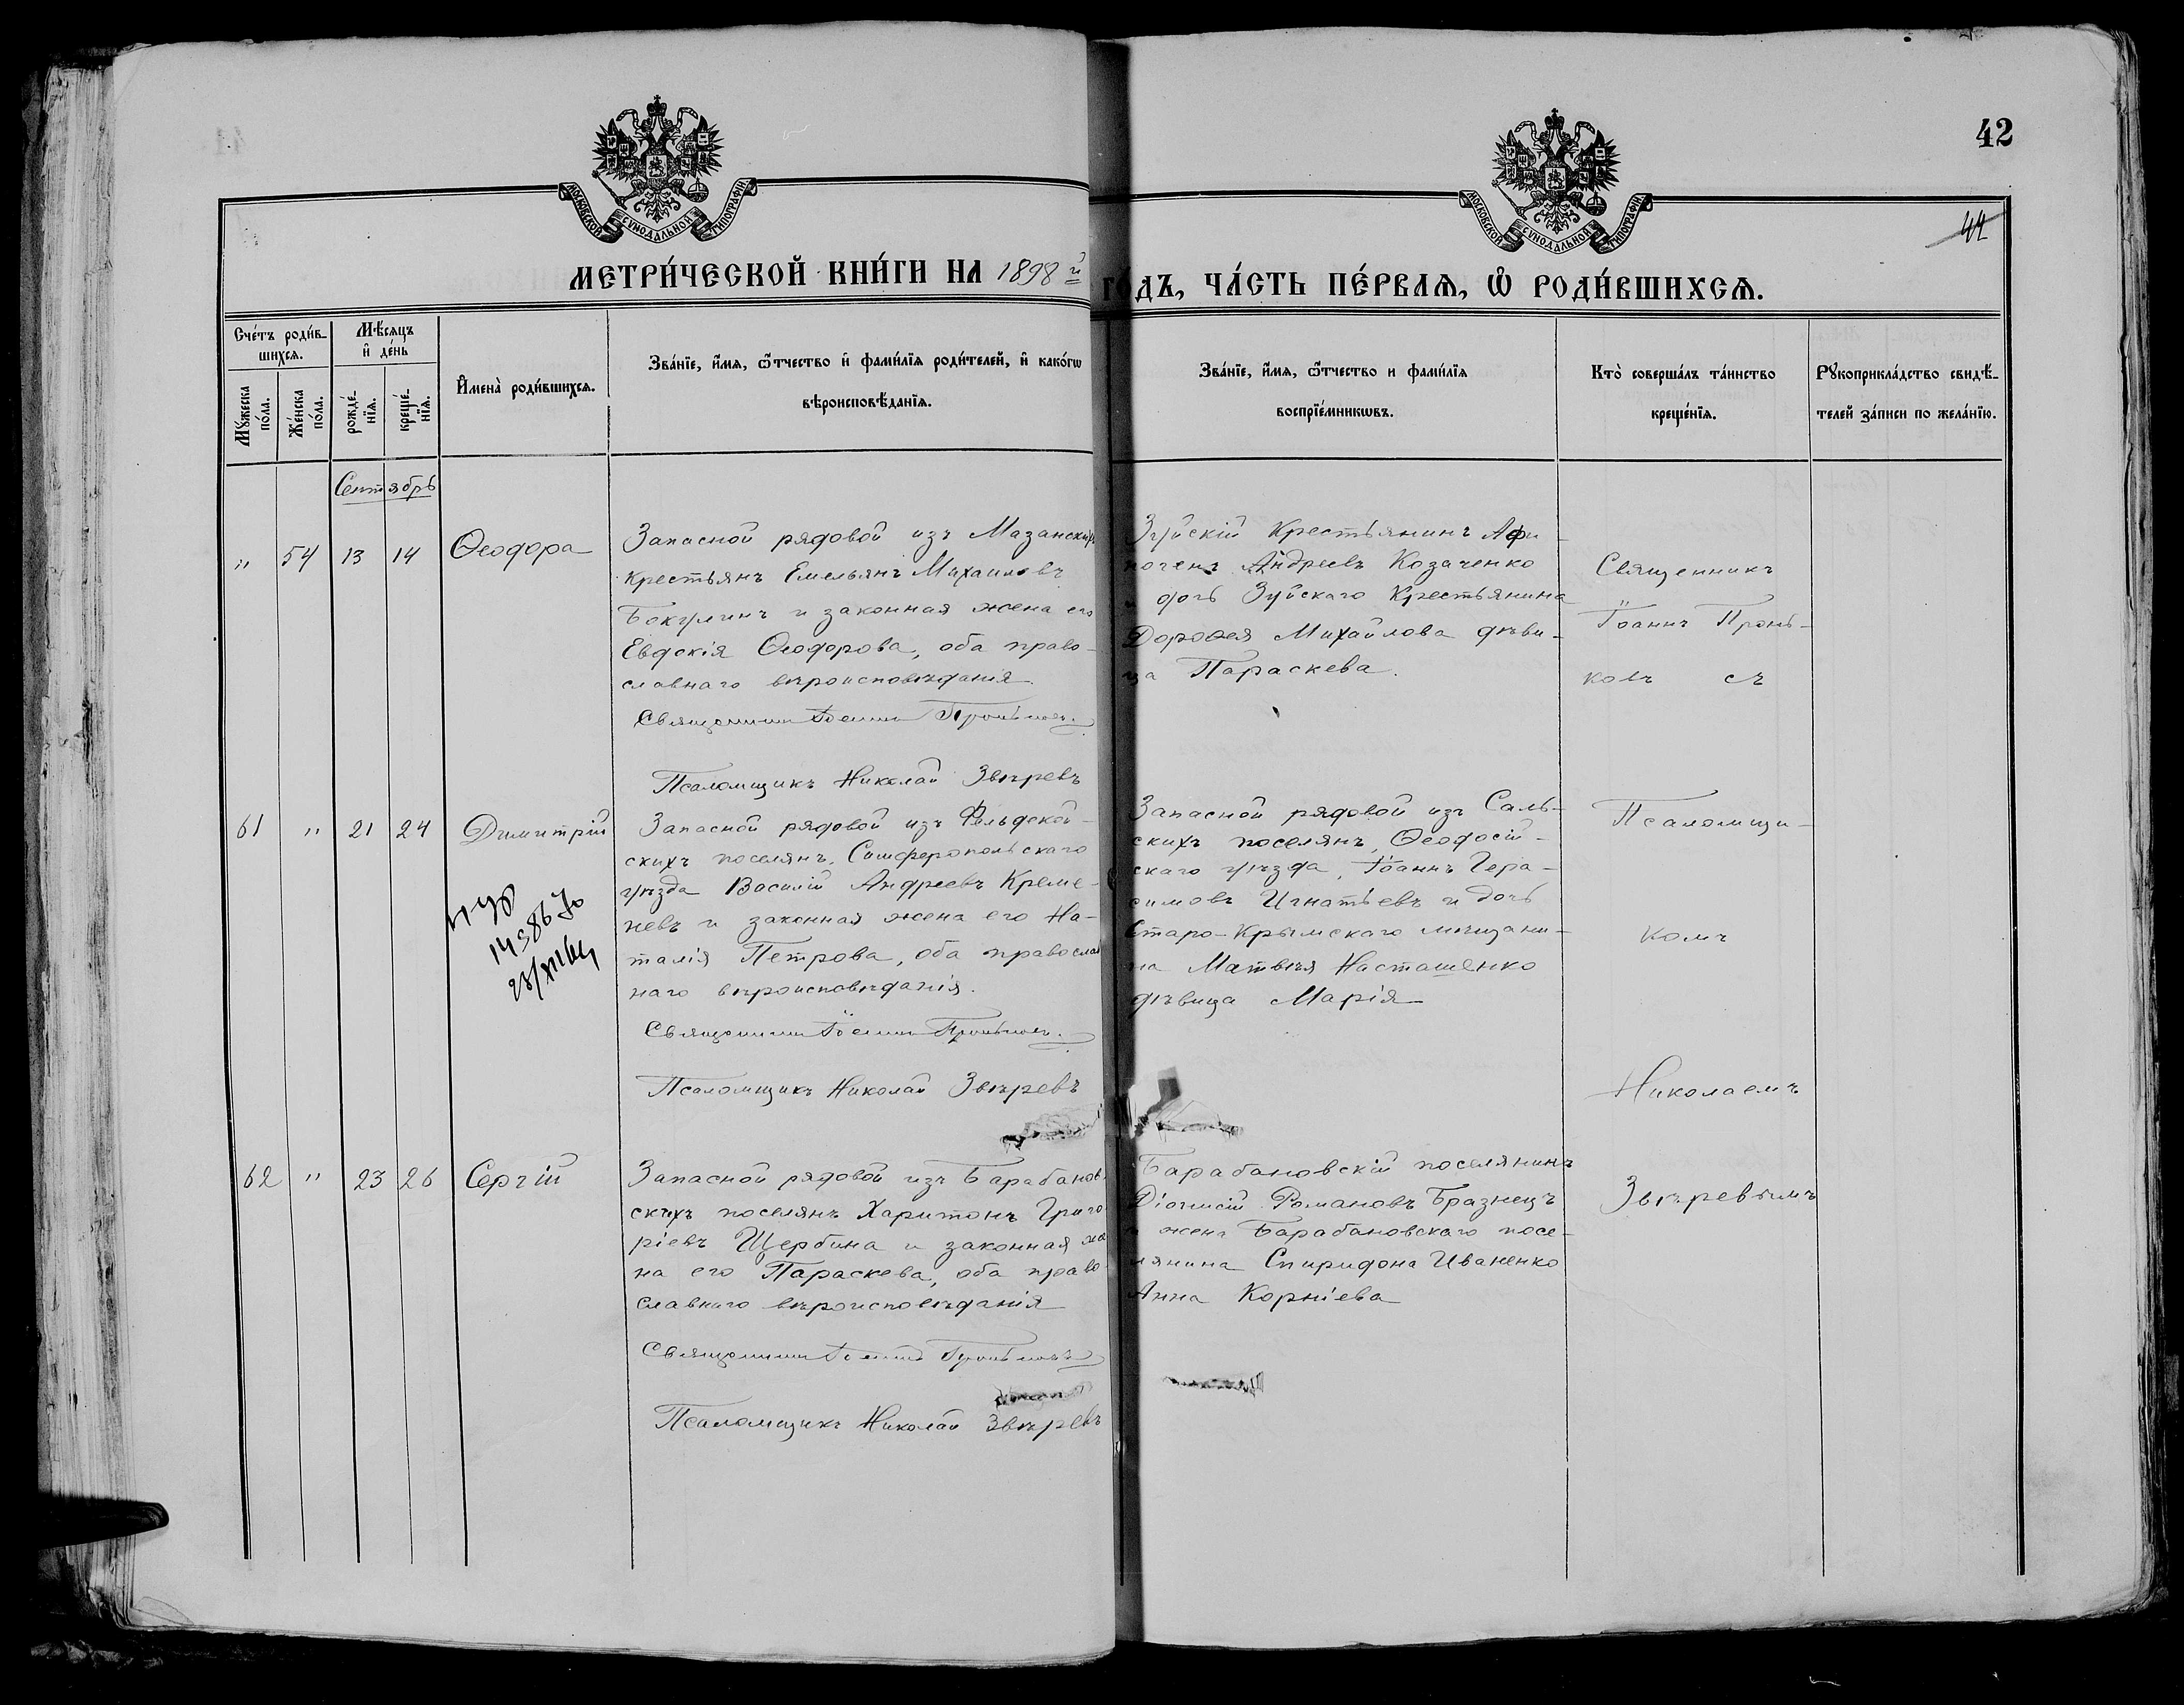 МОСКОВСКОЙ СУНОДАЛЬНОЙ ТИПОГРАФІИ.
МОСКОВСКОЙ СУНОДАЛЬНОЙ ТИПОГРАФІИ.
42
44
МЕТРИ́ЧЕСКОЙ КНИ́ГИ НА 1898 й
ГО́ДЪ, ЧА́СТЬ ПЕ́РВАѦ, Ѡ҆ РОДИ́ВШИХСѦ.
Сче́тъ роди́в-
шихсѧ.
Мѣ́сѧцъ
и҆ де́нь
Мꙋ́жеска
по́ла.
Же́нска
по́ла.
рожде́-
нїѧ.
креще́-
нїѧ.
И҆мена̀ роди́вшихсѧ.
Зва́нїе, и҆́мѧ, ѻ҆́тчество и҆ фами́лїѧ роди́телей, и҆ како́гѡ
вѣроисповѣ́данїѧ.
Зва́нїе, и҆́мѧ, ѻ҆́тчество и фами́лїѧ
воспрїе́мникѡвъ.
Кто̀ соверша́лъ та́инство
креще́нїѧ.
Рꙋкоприкла́дство свидѣ́-
телей за́писи по жела́нїю.
Сентябрь
" 54 13 14 Ѳеодора
Запасной рядовой изъ Мазанскихъ
крестьянъ Емельянъ Михаиловъ
Бокулинъ и законная жена его
Евдокія Ѳеодорова, оба право-
славнаго вѣроисповѣданія.
Священникъ Іоаннъ Проньковъ.
Псаломщикъ Николай Звѣревъ
Зуйскій Крестьянинъ Афи-
ногенъ Андреевъ Козаченко
и дочь Зуйскаго Крестьянина
Дороѳея Михайлова дѣви-
ца Параскева.
Священникъ
Іоаннъ Пронь-
ковъ съ
61 " 21 24 Димитрій
Запасной рядовой изъ Фельдской-
скихъ поселянъ, Симферопольскаго
уѣзда Василій Андреевъ Креме-
невъ и законная жена его На-
талія Петрова, оба православ
наго вѣроисповѣданія.
Священникъ Іоаннъ Проньковъ.
Псаломщикъ Николай Звѣревъ
Запасной рядовой изъ Саль-
скихъ поселянъ, Ѳеодосій-
скаго уѣзда, Іоаннъ Гера-
симовъ Игнатьевъ и дочь
Старо-Крымскаго мѣщани-
на Матвѣя Насташенко
дѣвица Марія
Псаломщи-
комъ
Николаемъ
Звѣревымъ
62 " 23 26 Сергій
Запасной рядовой изъ Барабанов-
скихъ поселянъ Харитонъ Григо
ріевъ Щербина и законная же
на его Параскева, оба право
славнаго вѣроисповѣданія
Священникъ Іоаннъ Проньковъ
Псаломщикъ Николай Звѣревъ
Барабановскій поселянинъ
Діонисій Романовъ Бразнецъ
и жена Барабановскаго посе-
лянина Спиридона Иваненко
Анна Корніева